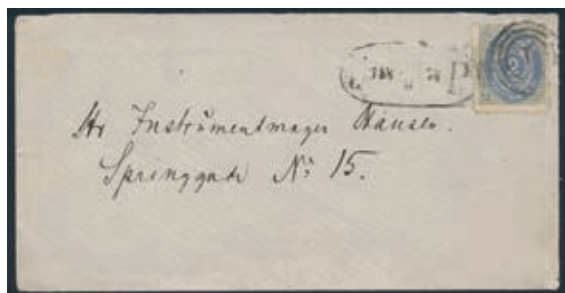 Hr Instrümentmager Hansen.
Springgade No 15.